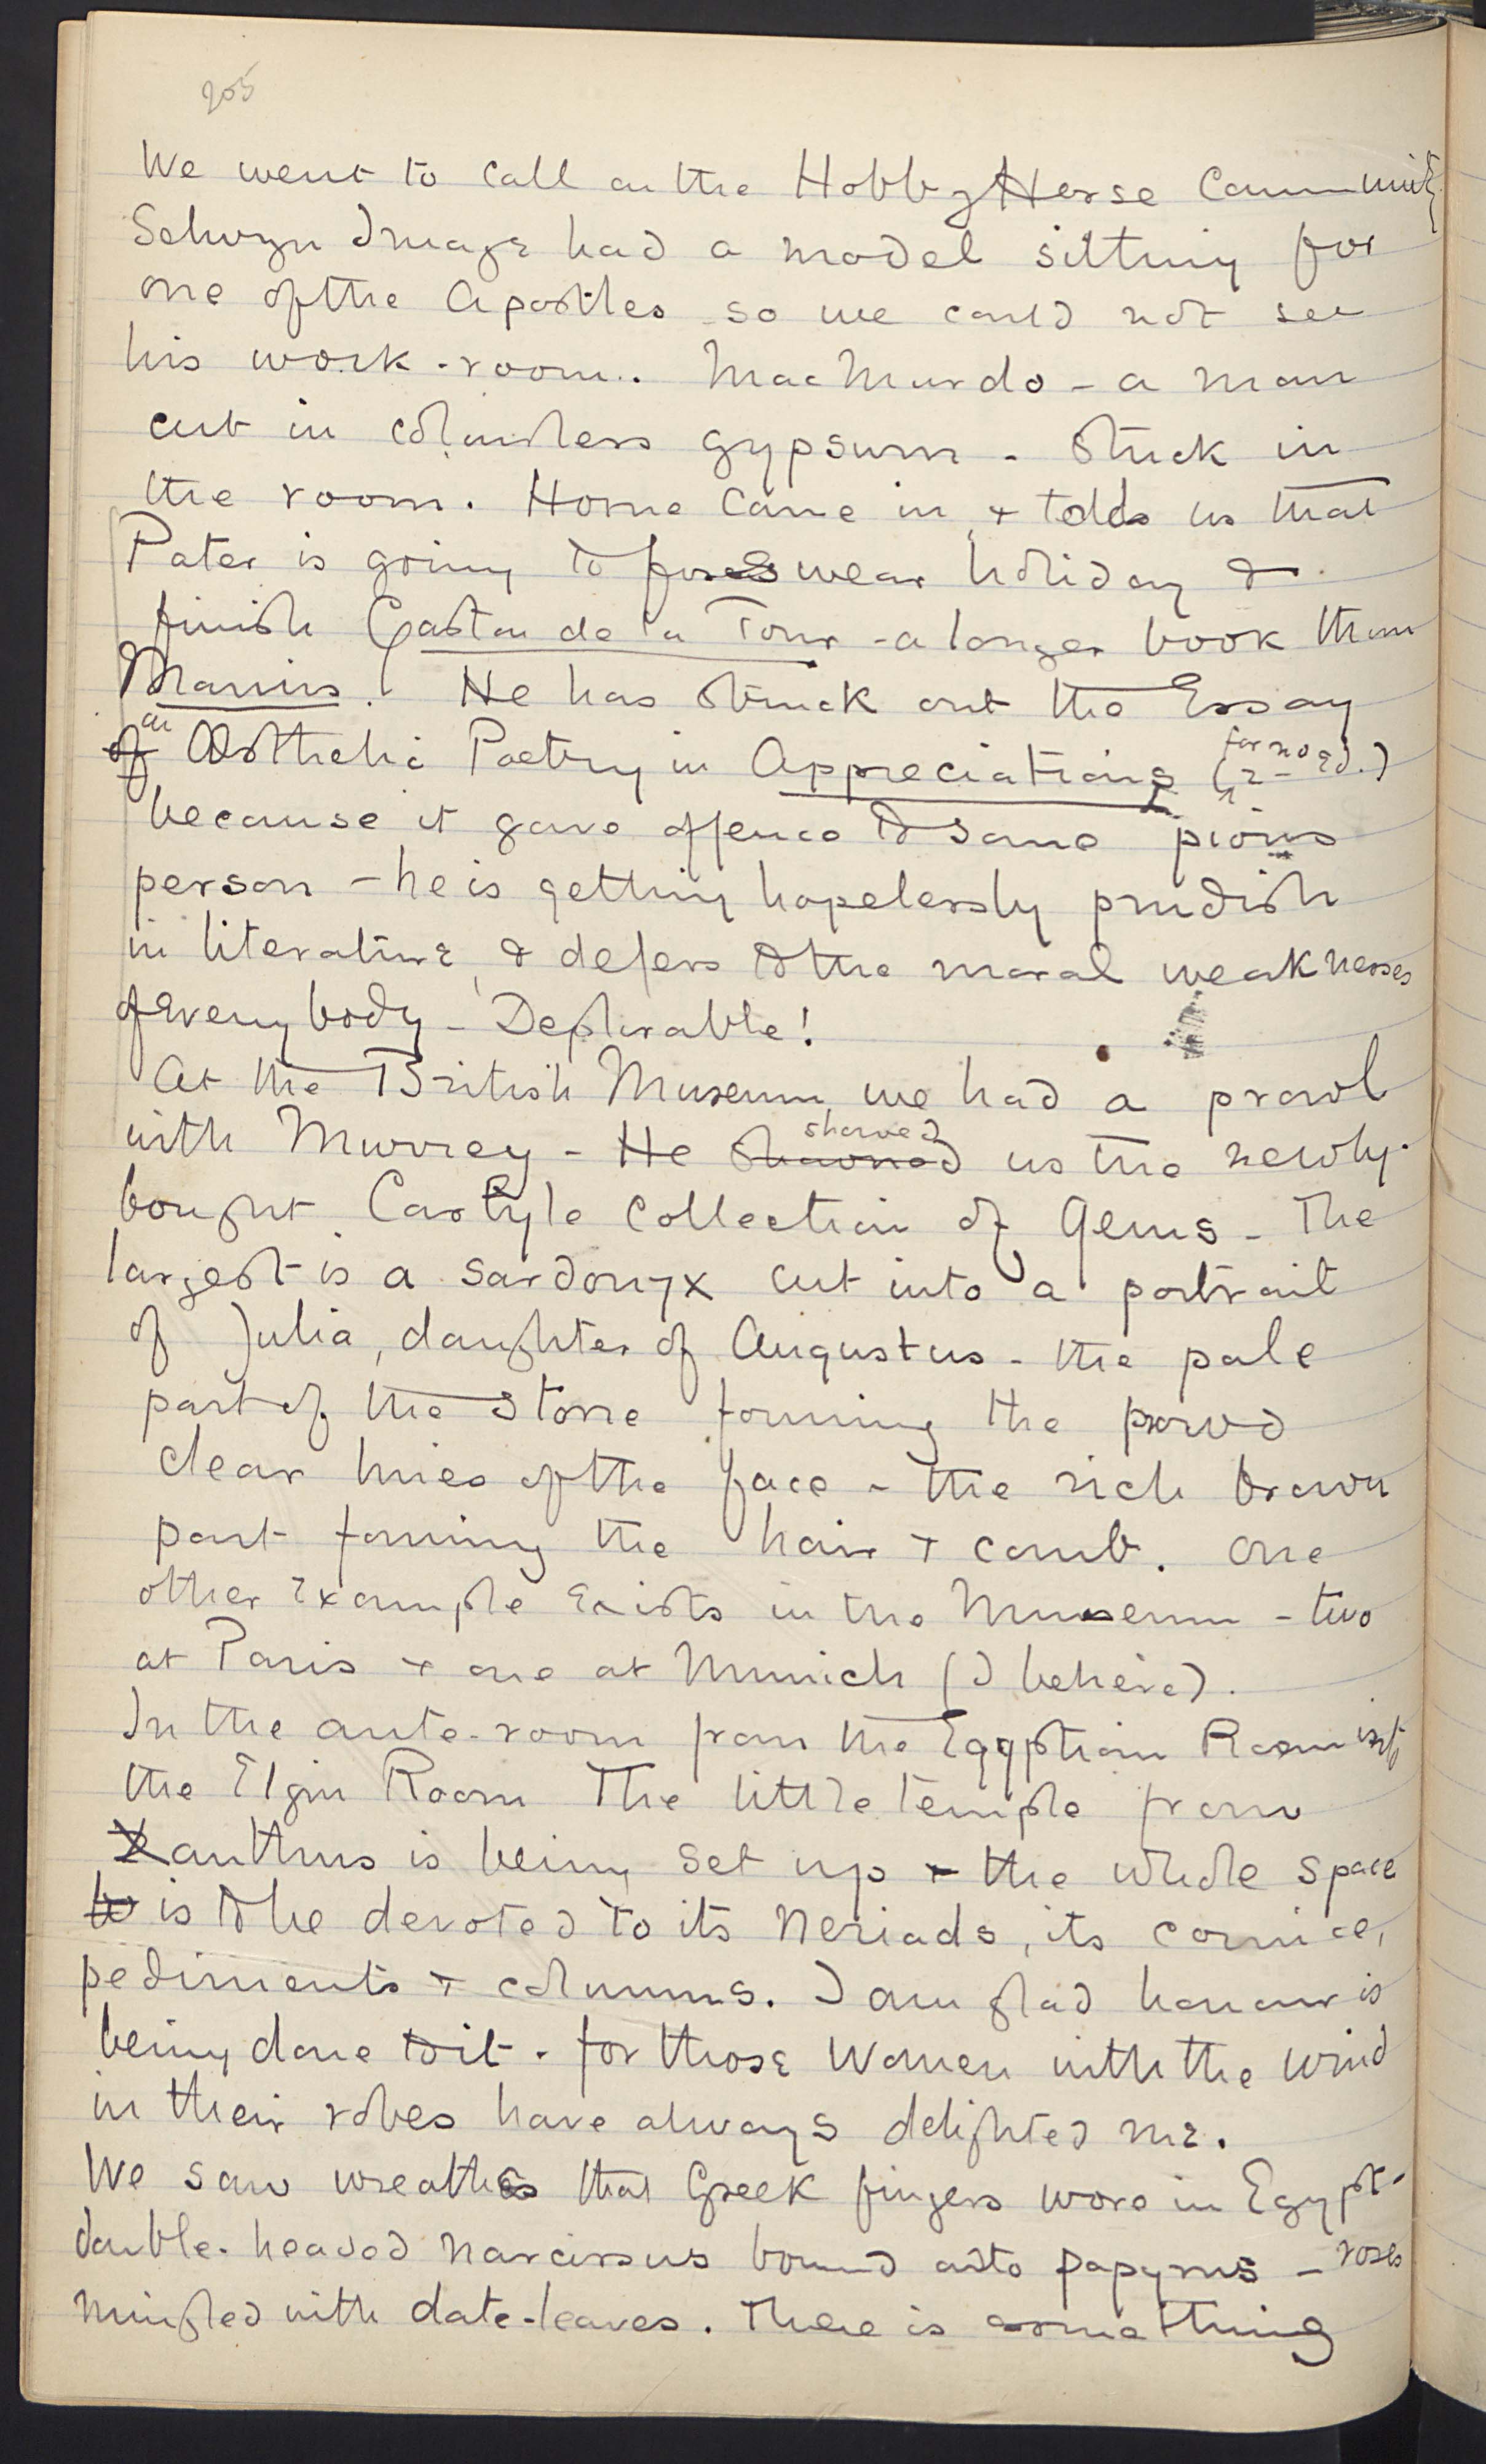 205
We went to call on the Hobby Horse Community
Selwyn Image had a model sitting for
one of the Apostles so we could not see
his work-room. MacMurdo - a man
cut in colourless gypsum - stuck in
the room. Horne came in, + tells us that
Pater is going to foreswear holiday &
finish Gaston de la Tour - a longer book than
Marius! He has struck out the Essay
of on Æsthetic Poetry in Appreciations (for 2nd ed.)
because it gave offence to some pious
person - he is getting hopelessly prudish
in literature, & defers to the moral weaknesses
of everybody - Deplorable!
At the British Museum, we had a prowl
with Murrey - He showed us the newly-
bought Castyle Collection of Gems - The
largest is a sardonyx cut into a portrait
of Julia, daughter of Augustus - the pale
part of the stone forming the proud
clear lines of the face - the rich brown
part forming the hair + comb. One
other example exists in the Museum - two
at Paris + one at Munich (I believe).
In the ante-room from the Egyptian Room into
the Elgin Room The little temple from
Xanthus is being set up + the whole space
to is to be devoted to its Neriads, its cornice,
pediments + columns. I am glad honour is
being done to it - for those women with the wind
in their robes have always delighted me.
We saw wreathes that Greek fingers wove in Egypt -
double-headed narcissus bound onto papyrus - roses
mingled with date-leaves. There is something